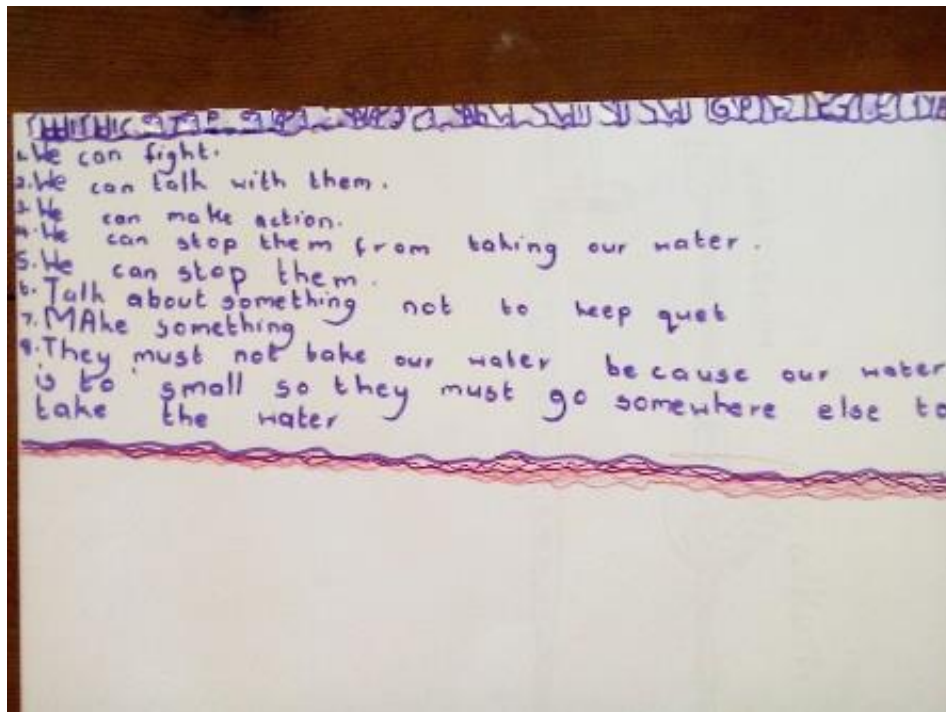 1. We can fight.
2. We can talk with them.
3. We can make action.
4. We can stop them from taking our water.
5. We can stop them.
6. Talk about something not to keep quet
7. MAke something
8. They must not take our water because our water
is to small so they must go somewhere else to
take the water